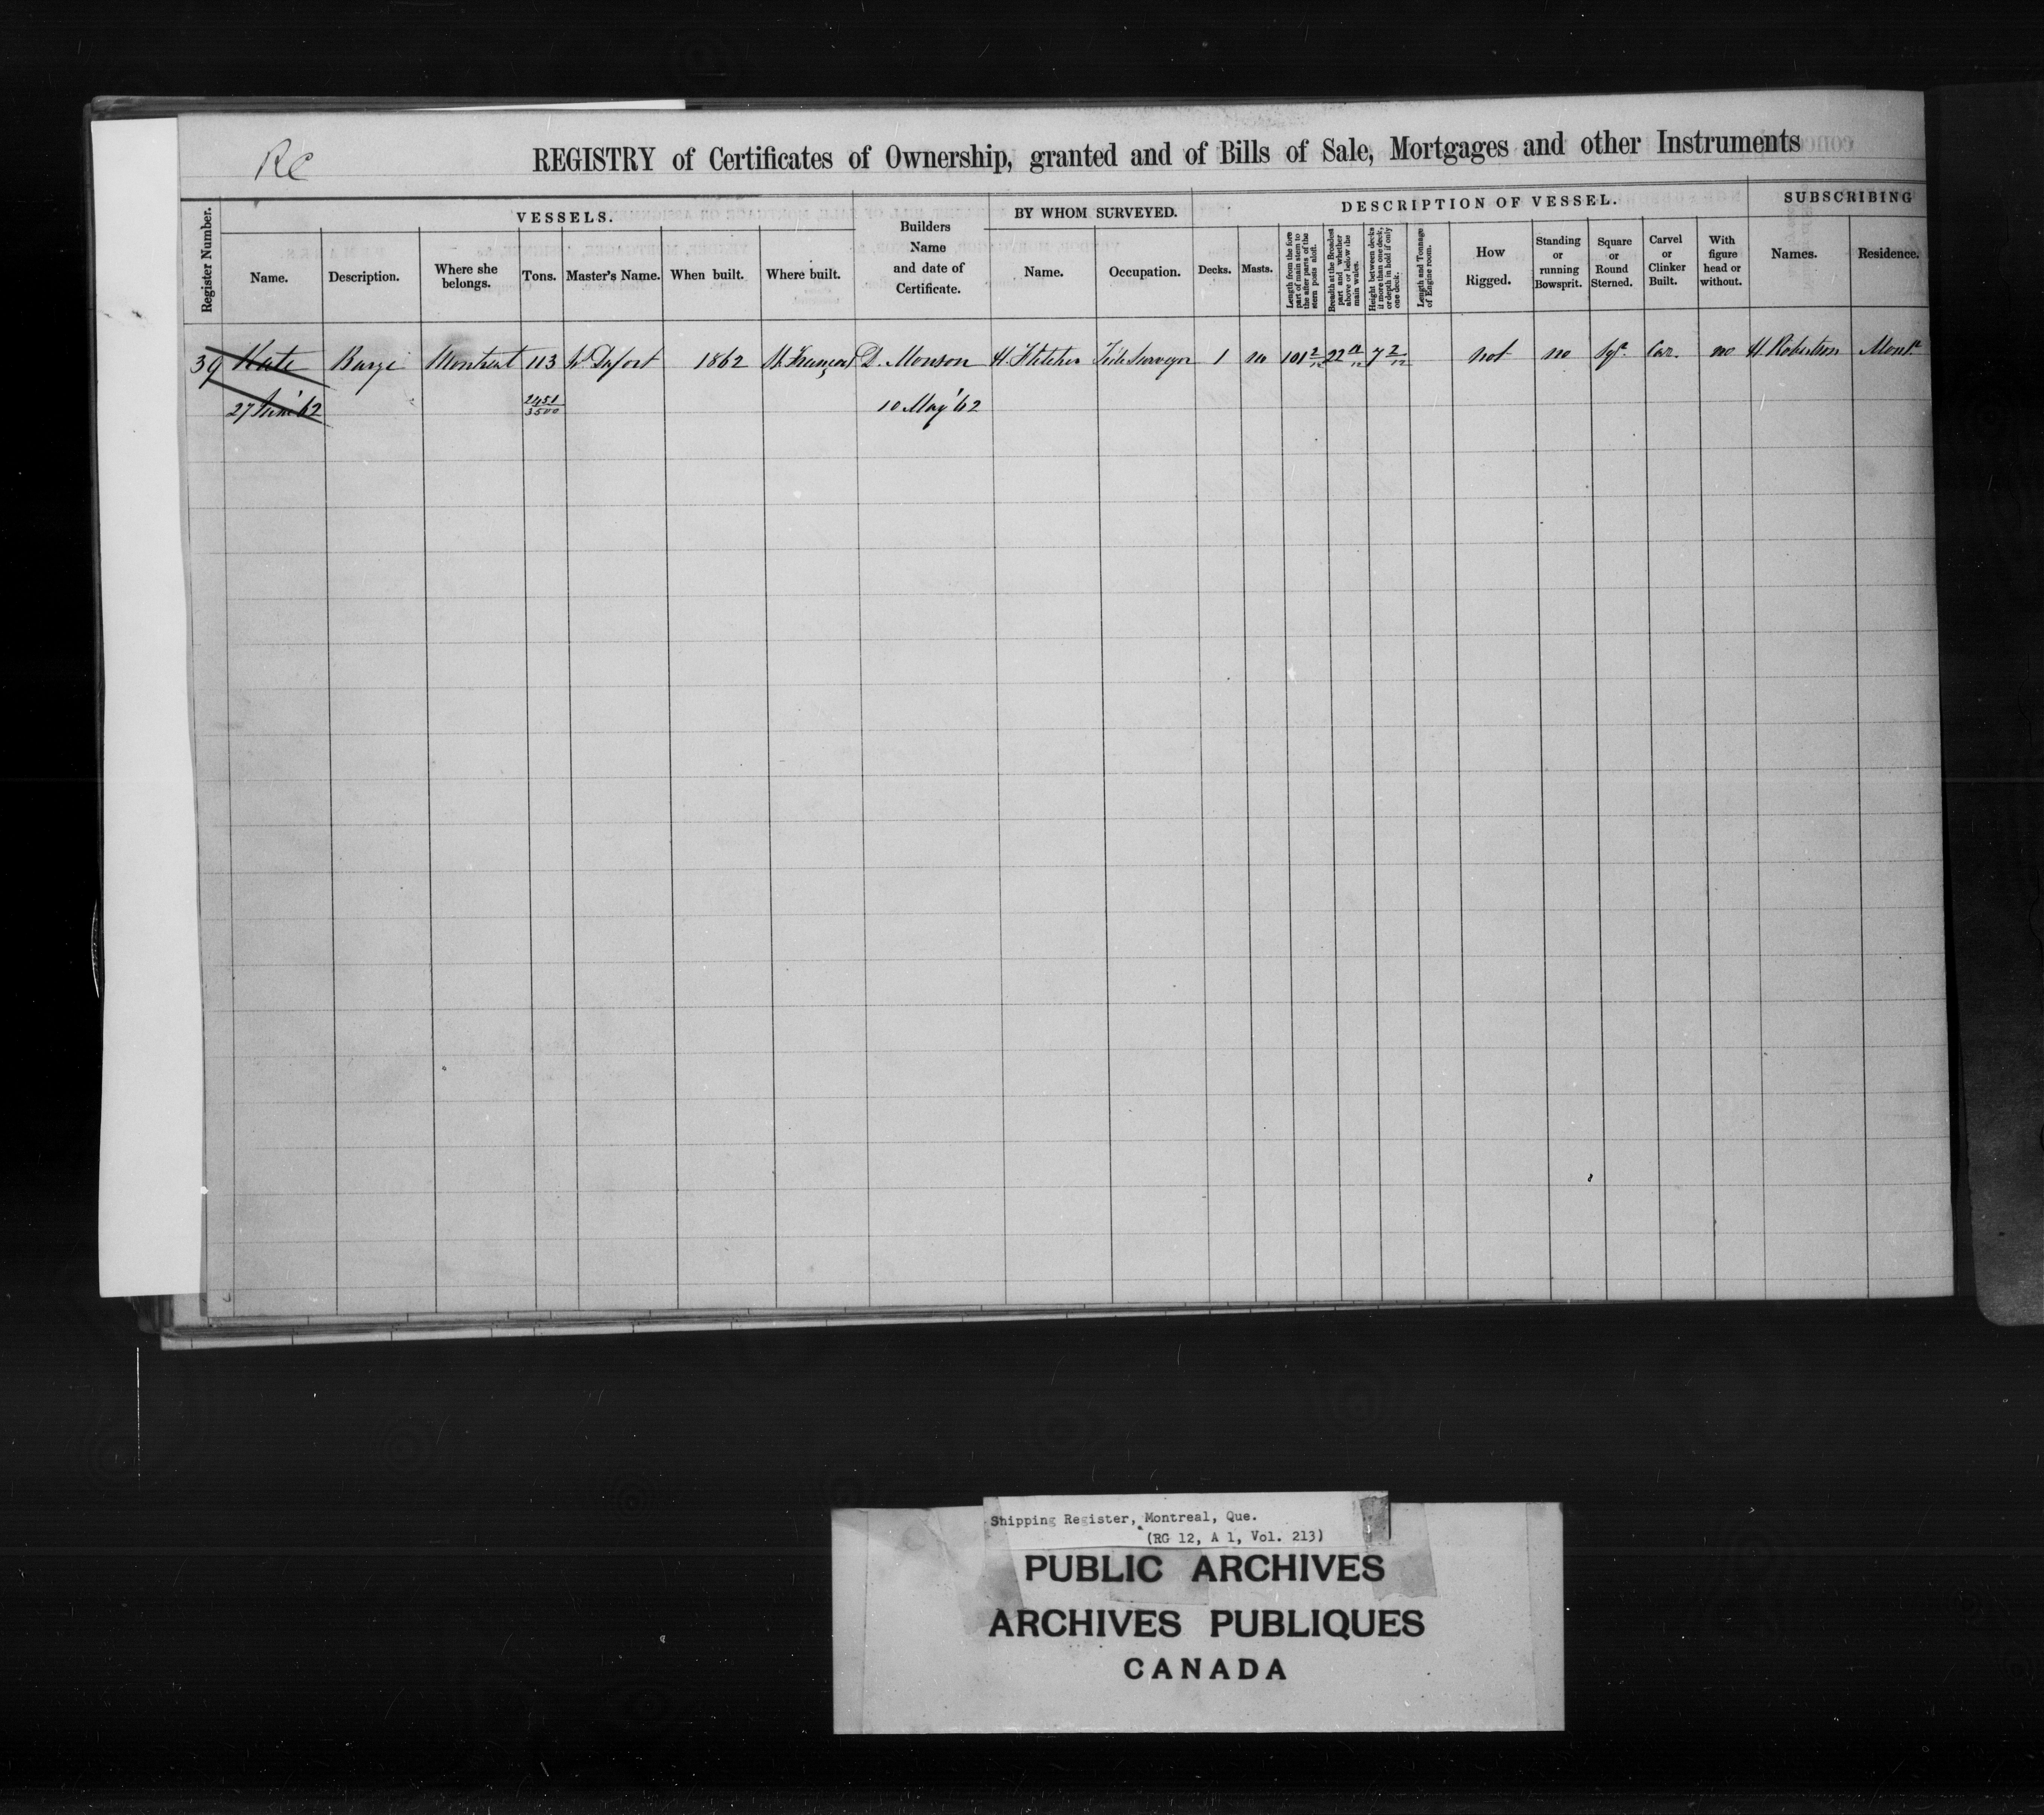 RC
REGISTRY of Certificates of Ownership, granted and of Bills of Sale, Mortgages and other Instruments
Register Number.
VESSELS.
Name.
Description.
Where she belongs.
Tons.
Master's Name.
When built.
Where built.
Builders Name and date of Certificate.
BY WHOM SURVEYED.
Name.
Occupation.
DESCRIPTION OF VESSEL.
Decks.
Masts.
Length from the fore part of main stem to the after parts of the stern posts aloft.
Breadth at the Broadest part and whether above or below the main wales.
Height between decks if more than one deck, or depth in hold if only one deck.
Length and Tonnage of Engine room.
How Rigged.
Standing or running Bowsprit.
Square or Round Sterned.
Carvel or Clinker Built.
With figure head or without.
SUBSCRIBING
Names.
Residence.
39 Kate Barge Montreal 113 1862 St. François D. Monson H. Fletcher Tide Surveyor 1 no 101 2/12 22 7 2/12 not no Sqr. Car. no H. Robertson Montl
27 June '62 2451/3500 10 May '62
Shipping Register, Montreal, Que.
(RG 12, A 1, Vol. 213)
PUBLIC ARCHIVES
ARCHIVES PUBLIQUES
CANADA